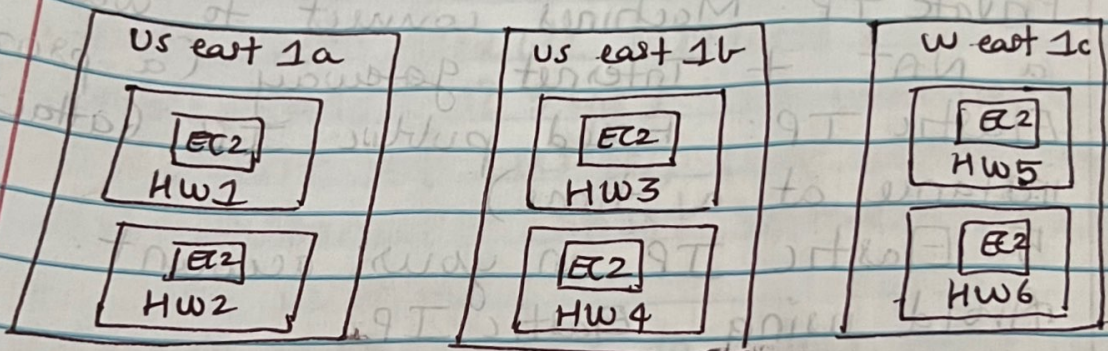 US east 1a
EC2
HW1
EC2
HW2
US east 1b
EC2
HW3
EC2
HW4
east 1c
EC2
HW5
EC2
HW6